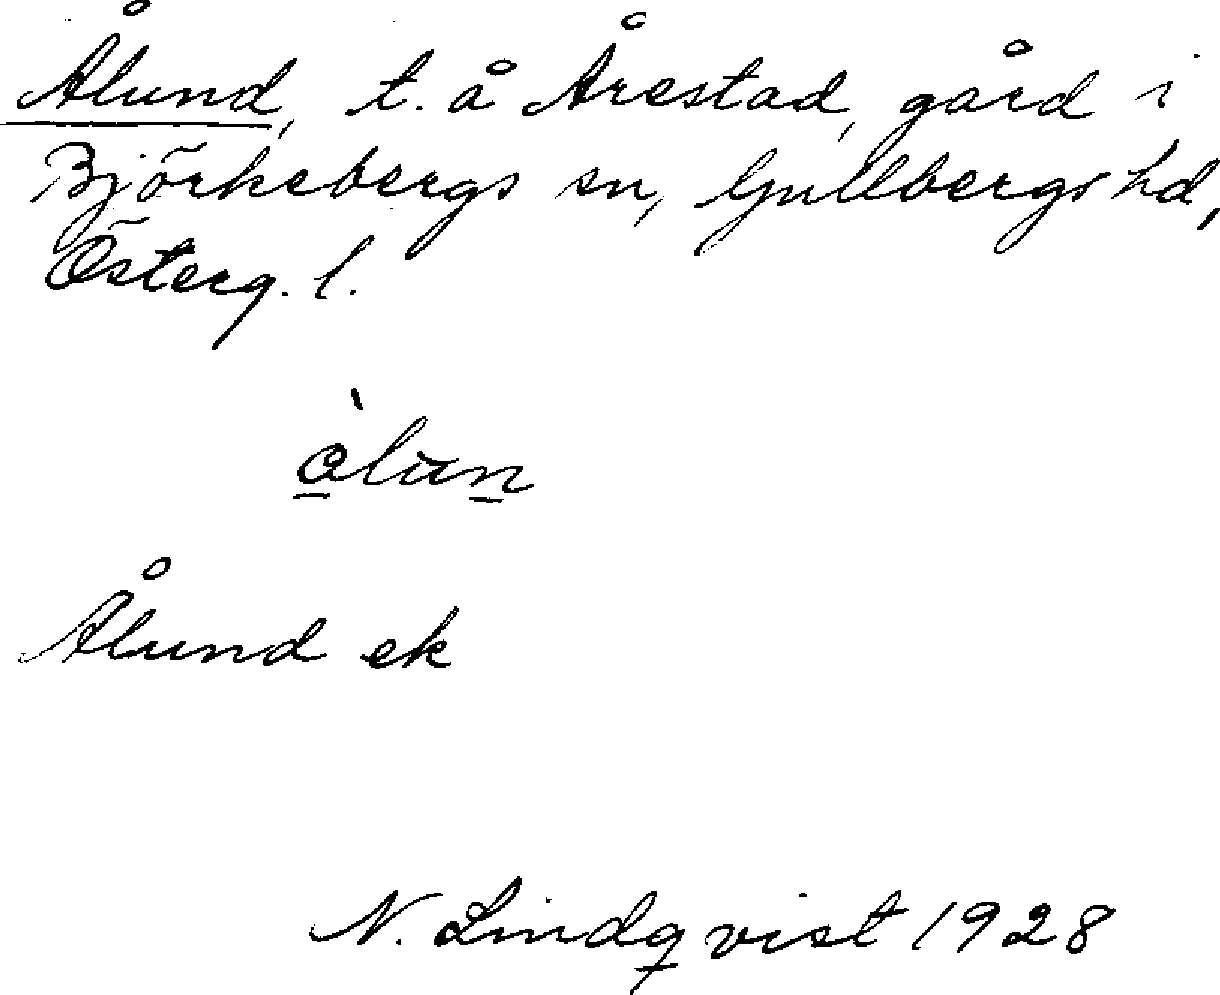 Ålund, t. å Årestad, gård i
Björkebergs sn, Gullbergs hd,
Österg. l.
å̀lun
Ålund ek
N. Lindqvist 1928